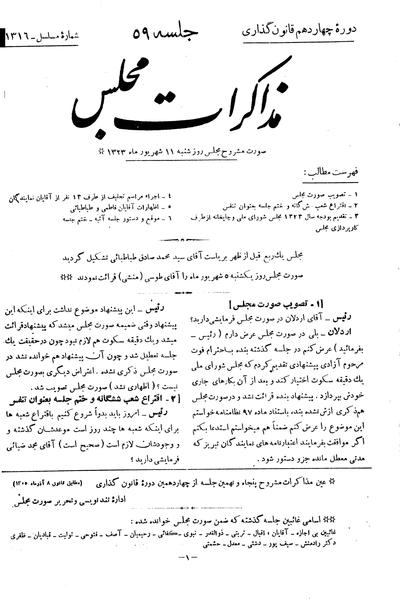 دورهٔ چهاردهم قانون گذاری
جلسه ۵۹
شمارهٔ مسلسل ـ ۱۳۱۶
مذاکرات مجلس
صورت مشروح مجلس روز شنبه ۱۱ شهریور ماه ۱۳۲۳ ※
فهرست مطالب:
۱ ـ تصویب صورت مجلس
۲ ـ اقتراع شعب ششگانه و ختم جلسه بعنوان تنفس
۳ ـ تقدیم بودجه سال ۱۳۲۳ مجلس شورای ملی و چاپخانه از طرف
کارپردازی مجلس
۴ ـ اجراء مراسم تحلیف از طرف ۱۳ نفر از آقایان نمایندگان
۵ ـ اظهارات آقایان فاطمی و طباطبائی
۶ ـ موقع و دستور جلسه آتیه ـ ختم جلسه
مجلس یک ربع قبل از ظهر بریاست آقای سید محمد صادق طباطبائی تشکیل گردید
صورت مجلس روز یکشنبه ۵ شهریور ماه را آقای طوسی (منشی) قرائت نمودند ※※
[۱ ـ تصویب صورت مجلس]
رئیس ـ آقای اردلان در صورت مجلس فرمایشی دارید؟
اردلان ـ بلی در صورت مجلس عرض دارم (رئیس ـ
بفرمائید) عرض کنم در جلسه گذشته بنده باحترام فوت
مرحوم آزادی پیشنهادی تقدیم کردم که مجلس شورای ملی
یک دقیقه سکوت اختیار کند و بعد از آن بکارهای جاری
خودش بپردازد. پیشنهاد بنده قرائت نشد و در صورت مجلس
هم ذکری ازش نشده بنده باستناد ماده ۹۷ نظامنامه خواستم
این موضوع را عرض کنم ضمناً هم میخواستم استدعا بکنم
اگر موافقت بفرمایند اعتبارنامه های نمایندگان تبریز که
مدتی معطل مانده جزو دستور شود.
رئیس ـ این پیشنهاد موضوع نداشت برای اینکه این
پیشنهاد وقتی ضمیمه صورت مجلس میشد که پیشنهاد قرائت
میشد و یک دقیقه سکوت هم لازم نبود چون در حقیقت یک
جلسه تعطیل شد و چون آن پیشنهاد هم خوانده نشد در
صورت مجلس ذکری نشده. اعتراض دیگری بصورت مجلس
نیست؟ (اظهاری نشد) صورت مجلس تصویب شد.
[۲ ـ اقتراع شعب ششگانه و ختم جلسه بعنوان تنفس]
رئیس ـ امروز باید بدواً شروع کنیم باقتراع شعبه ها
برای اینکه شعبه ها چند روز است موعدشان گذشته و
وجودشان لازم است (صحیح است) آقای مجد ضیائی
فرمایشی دارید؟
※ عین مذاکرات مشروح پنجاه و نهمین جلسه از چهاردهمین دورهٔ قانون گذاری (مطابق قانون ۸ آذرماه ۱۳۰۵)
ادارهٔ تند نویسی و تحریر صورت مجلس
※※ اسامی غائبین جلسه گذشته که ضمن صورت مجلس خوانده شده:
غائبین بی اجازه ـ آقایان: اقبال ـ تربتی ـ ذوالقدر ـ نبوی ـ کفائی ـ رحیمیان ـ آصف ـ فتوحی ـ تولیت ـ قبادیان ـ ظفری
دکتر رادمنش ـ سیف پور ـ دشتی ـ معدل ـ حشمتی
ـ۱ـ